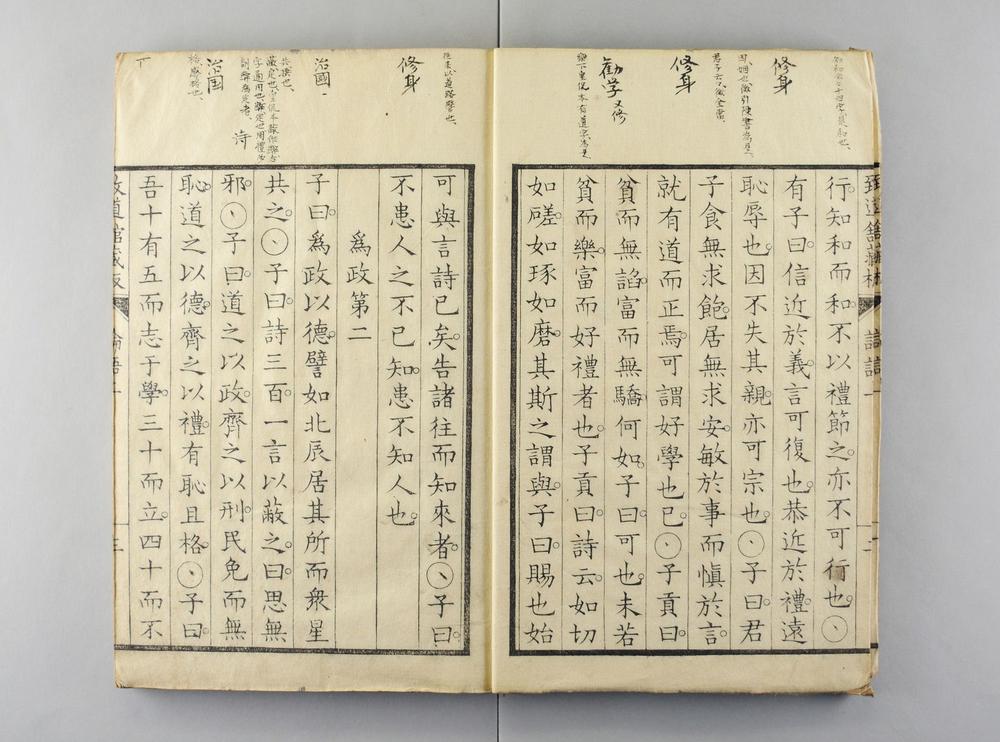 修身
修身
勸学
修身
治國
治国
致道館藏板
論語一
行。知和而和不以禮節之。亦不可行也。
有子曰。信近於義。言可復也。恭近於禮。遠
恥辱也。因不失其親。亦可宗也。子曰。君
子食無求飽。居無求安。敏於事而愼於言。
就有道而正焉。可謂好學也已。子貢曰。
貧而無諂。富而無驕。何如。子曰。可也。未若
貧而樂。富而好禮者也。子貢曰。詩云。如切
如磋。如琢如磨。其斯之謂與。子曰。賜也始
可與言詩已矣。告諸往而知來者。子曰。
不患人之不已知。患不知人也。
爲政第二
子曰。爲政以德。譬如北辰居其所而衆星
共之。子曰。詩三百。一言以蔽之。曰。思無
邪。子曰。道之以政。齊之以刑。民免而無
恥。道之以德。齊之以禮。有恥且格。子曰。
吾十有五而志于學。三十而立。四十而不
致道館藏板
論語一
三